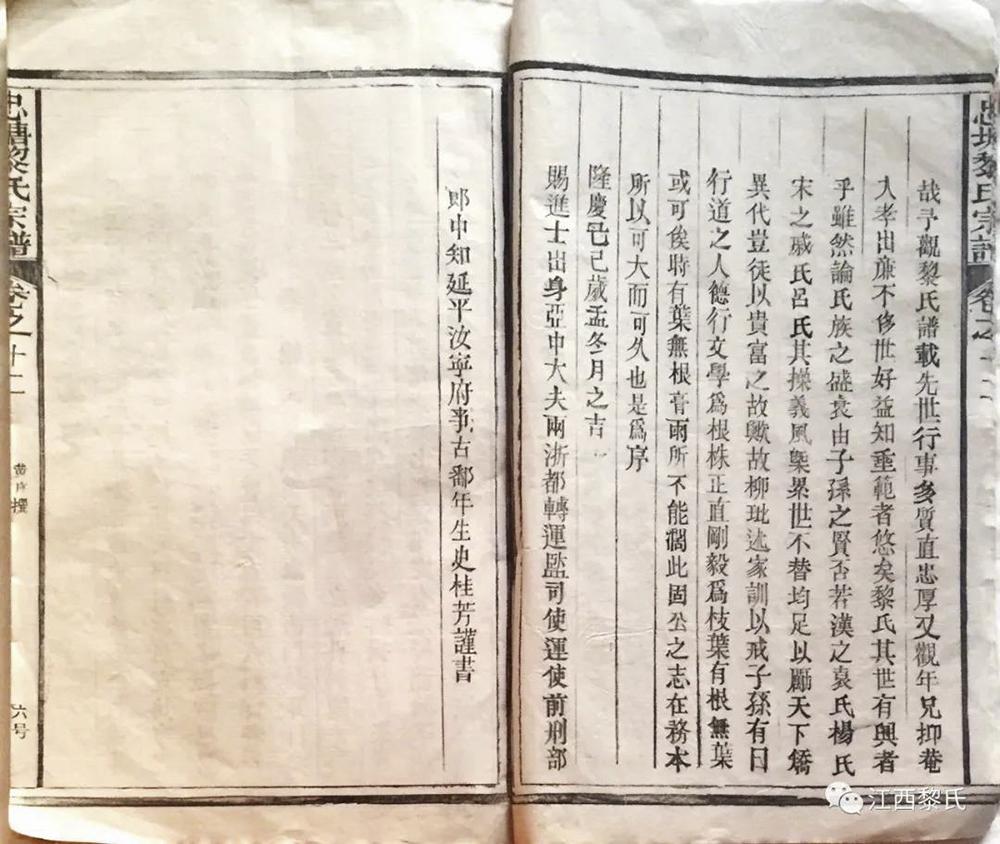 忠塘黎氏宗譜
哉予觀黎氏譜載先世行事多質直忠厚又觀年兄抑菴
入孝出廉不修世好益知垂範者悠矣黎氏其世有興者
乎雖然論氏族之盛衰由子孫之賢否若漢之袁氏楊氏
宋之戚氏呂氏其操義風槩累世不替均足以勵天下矯
異代豈徒以貴富之故歟故柳玭述家訓以戒子孫有曰
行道之人德行文學爲根株正直剛毅爲枝葉有根無葉
或可俟時有葉無根膏雨所不能濶此固公之志在務本
所以可大而可久也是爲序
隆慶己巳歲孟冬月之吉
賜進士出身亞中大夫兩浙都轉運監司使運使前刑部
郎中知延平汝寧府事古鄱年生史桂芳謹書
忠塘黎氏宗譜
卷之十二
撰
六号
江西黎氏